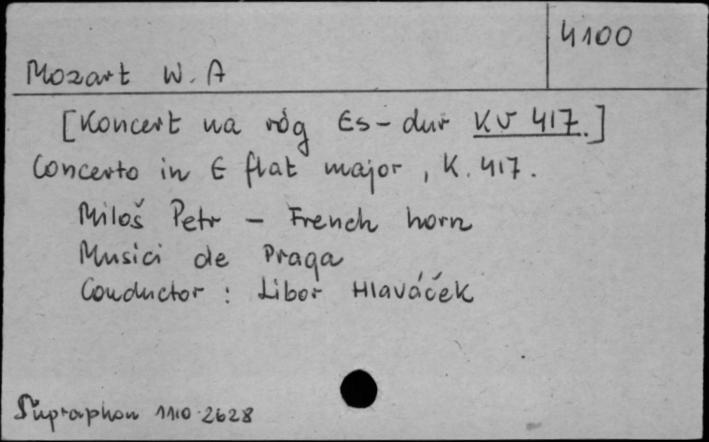 4100
Mozart W. A
[Koncert na róg Es-dur KV 417.]
Concerto in E flat major, K. 417.
Miloš Petr - French horn
Musici de Praga
Conductor: Libor Hlaváček
Supraphon 1110-2628